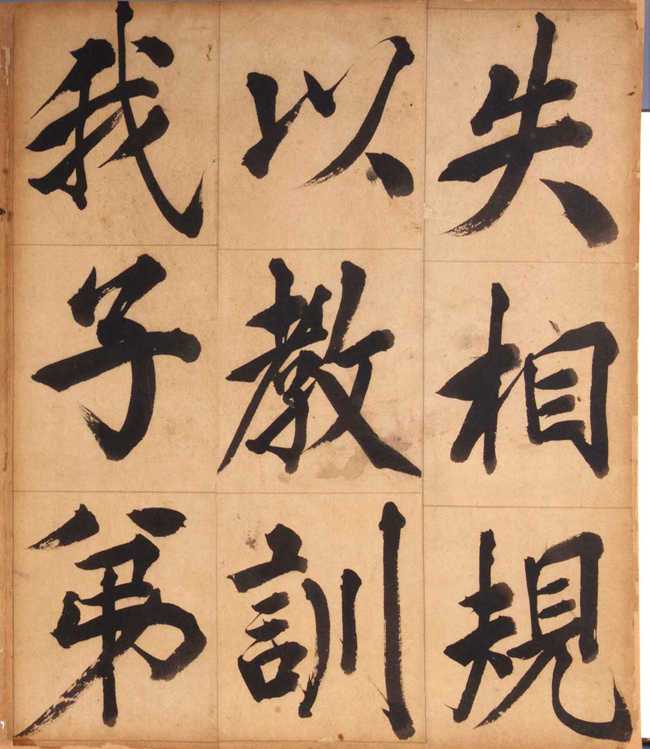 失相規
以教訓
我子弟